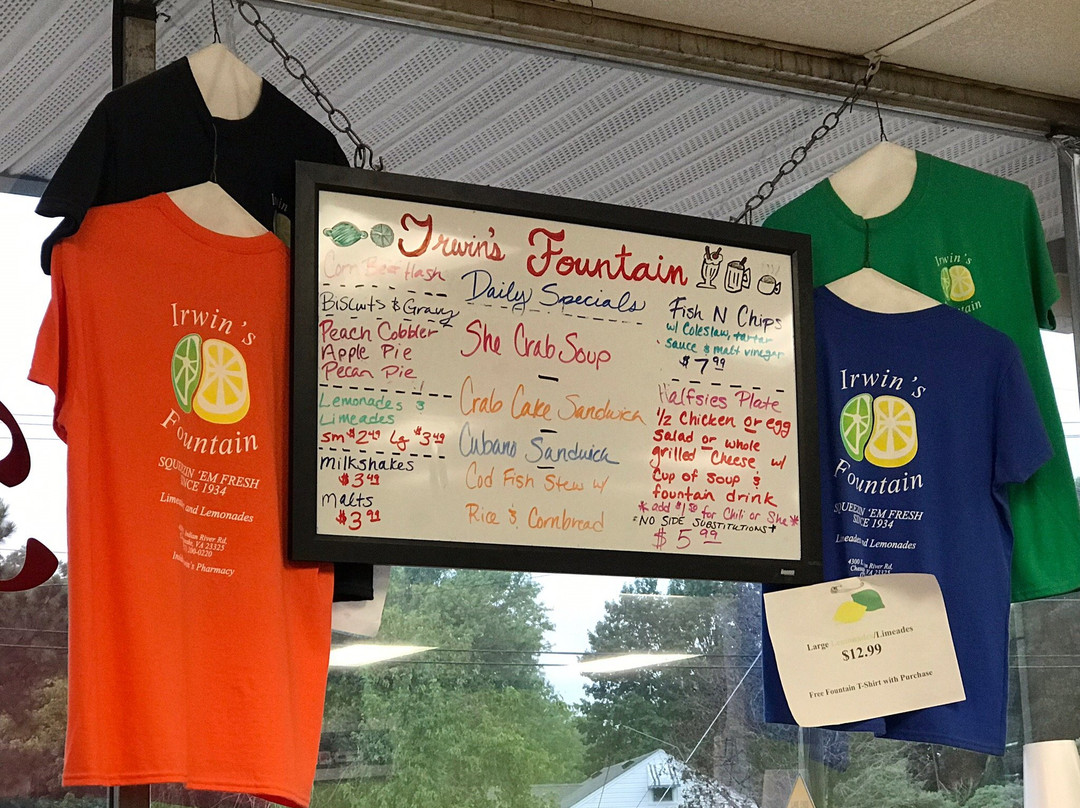 Irwin's Fountain
Corn Beef Hash
Biscuits & Gravy
Peach Cobbler
Apple Pie
Pecan Pie
Lemonades &
Limeades
sm $2.49 Lg $3.49
milkshakes
$3.49
malts
Daily Specials
She Crab Soup
Crab Cake Sandwich
Cubano Sandwich
Cod Fish Stew w/
Rice & Cornbread
Fish N Chips
w/ Coleslaw, tartar
sauce & malt vinegar
$7.99
Halfsies Plate
1/2 Chicken or egg
Salad or whole
grilled Cheese w/
Cup of Soup &
fountain drink
*add $1.50 for Chili or She*
*NO SIDE SUBSTITUTIONS*
$5.99
Irwin's
Fountain
SQUEEZIN 'EM FRESH
SINCE 1934
Limeades and Lemonades
Indian River Rd.
VA 23325
Pharmacy
Irwin's
Irwin's
Fountain
SQUEEZIN 'EM FRESH
SINCE 1934
Limeades and Lemonades
4300 River Rd.
VA 23325
Irwin
Large /Limeades
$12.99
Free Fountain T-Shirt with Purchase